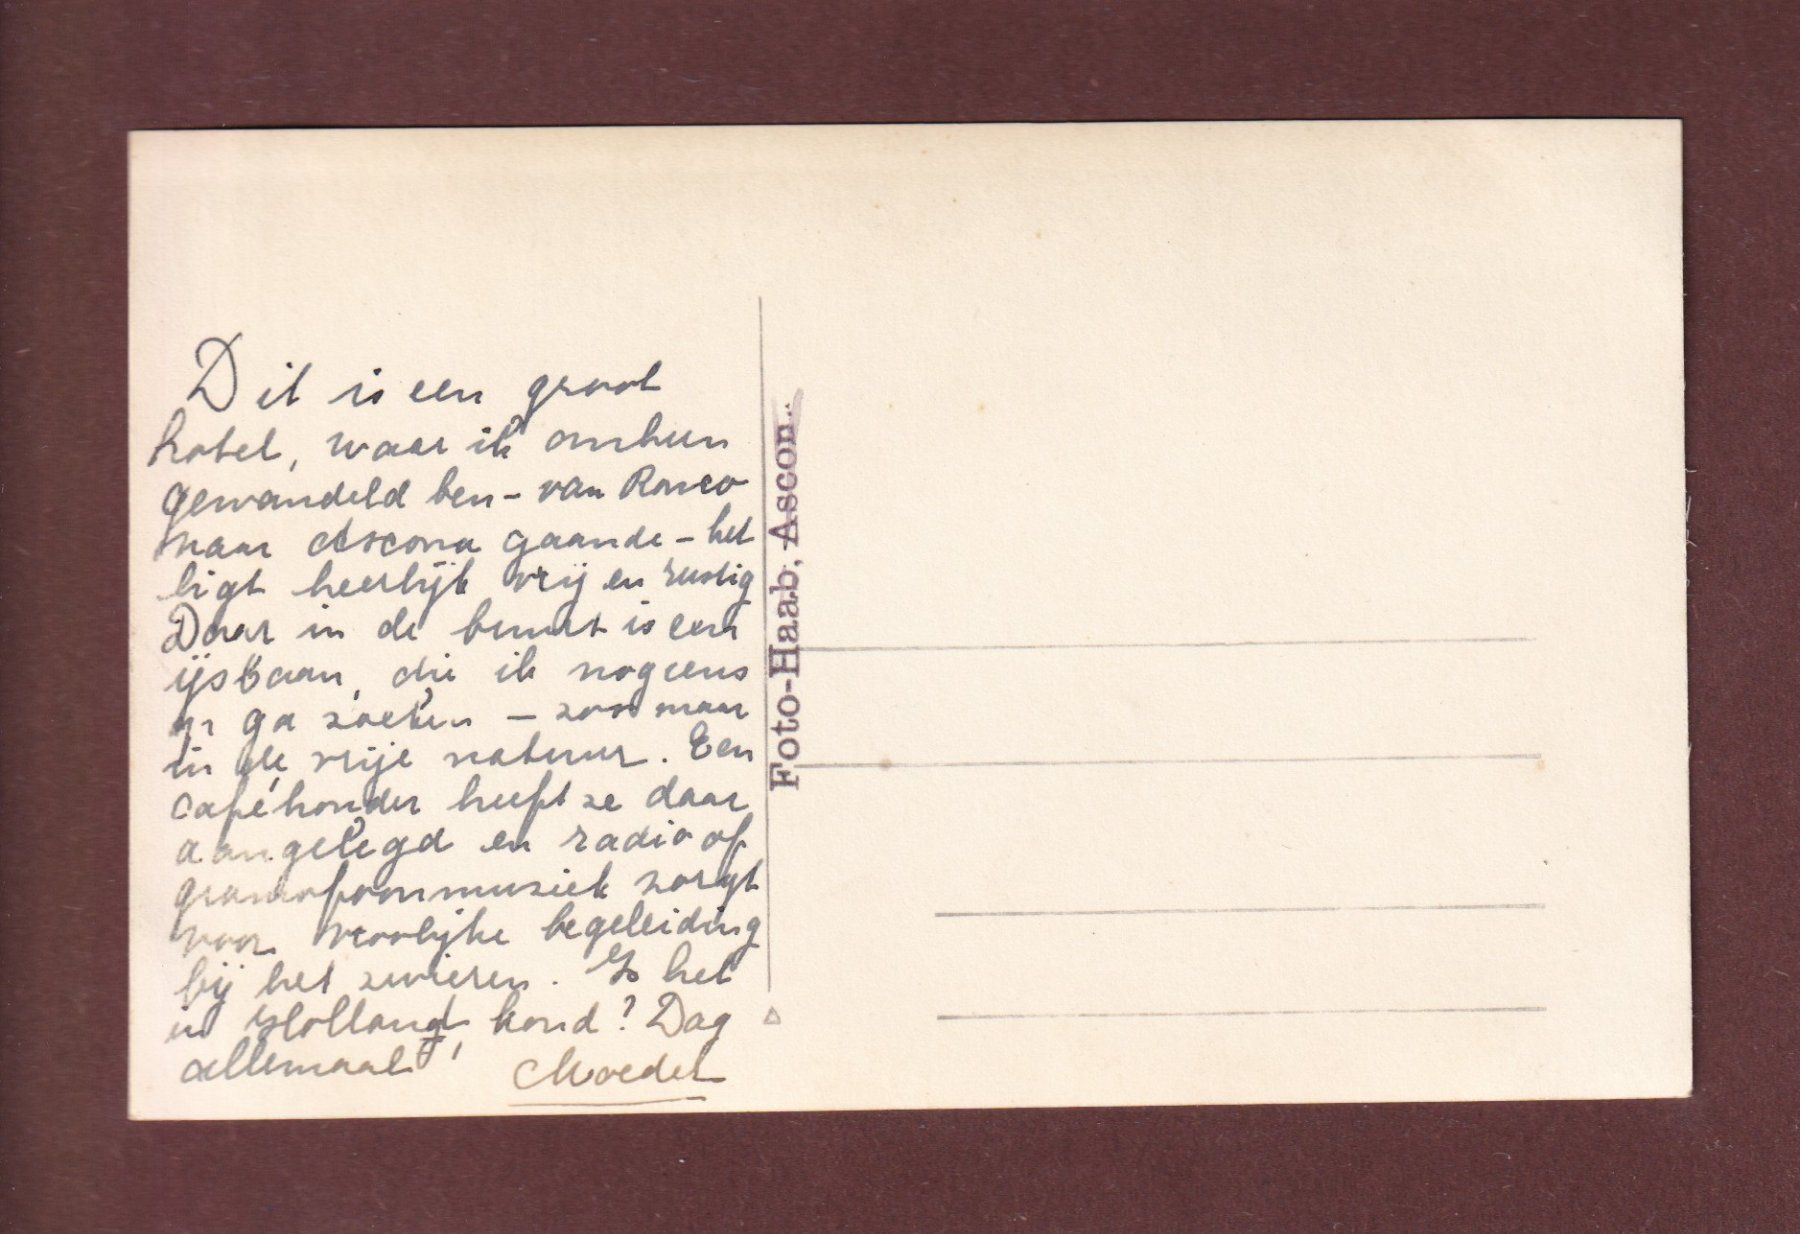 Dit is een groot
hotel, waar ik omheen
gewandeld ben - van Ronco
naar Ascona gaande - het
ligt heerlijk vrij en rustig
Daar in de buurt is een
ijsbaan, die ik nog eens
ga zoeken - zoo maar
in de vrije natuur. Een
caféhouder heeft ze daar
aangelegd en radio of
gramofoonmuziek zorgt
voor vroolijke begeleiding
bij het zwieren. Is het
in Holland koud? Dag
allemaal,
Moeder
Foto-Haab, Ascon